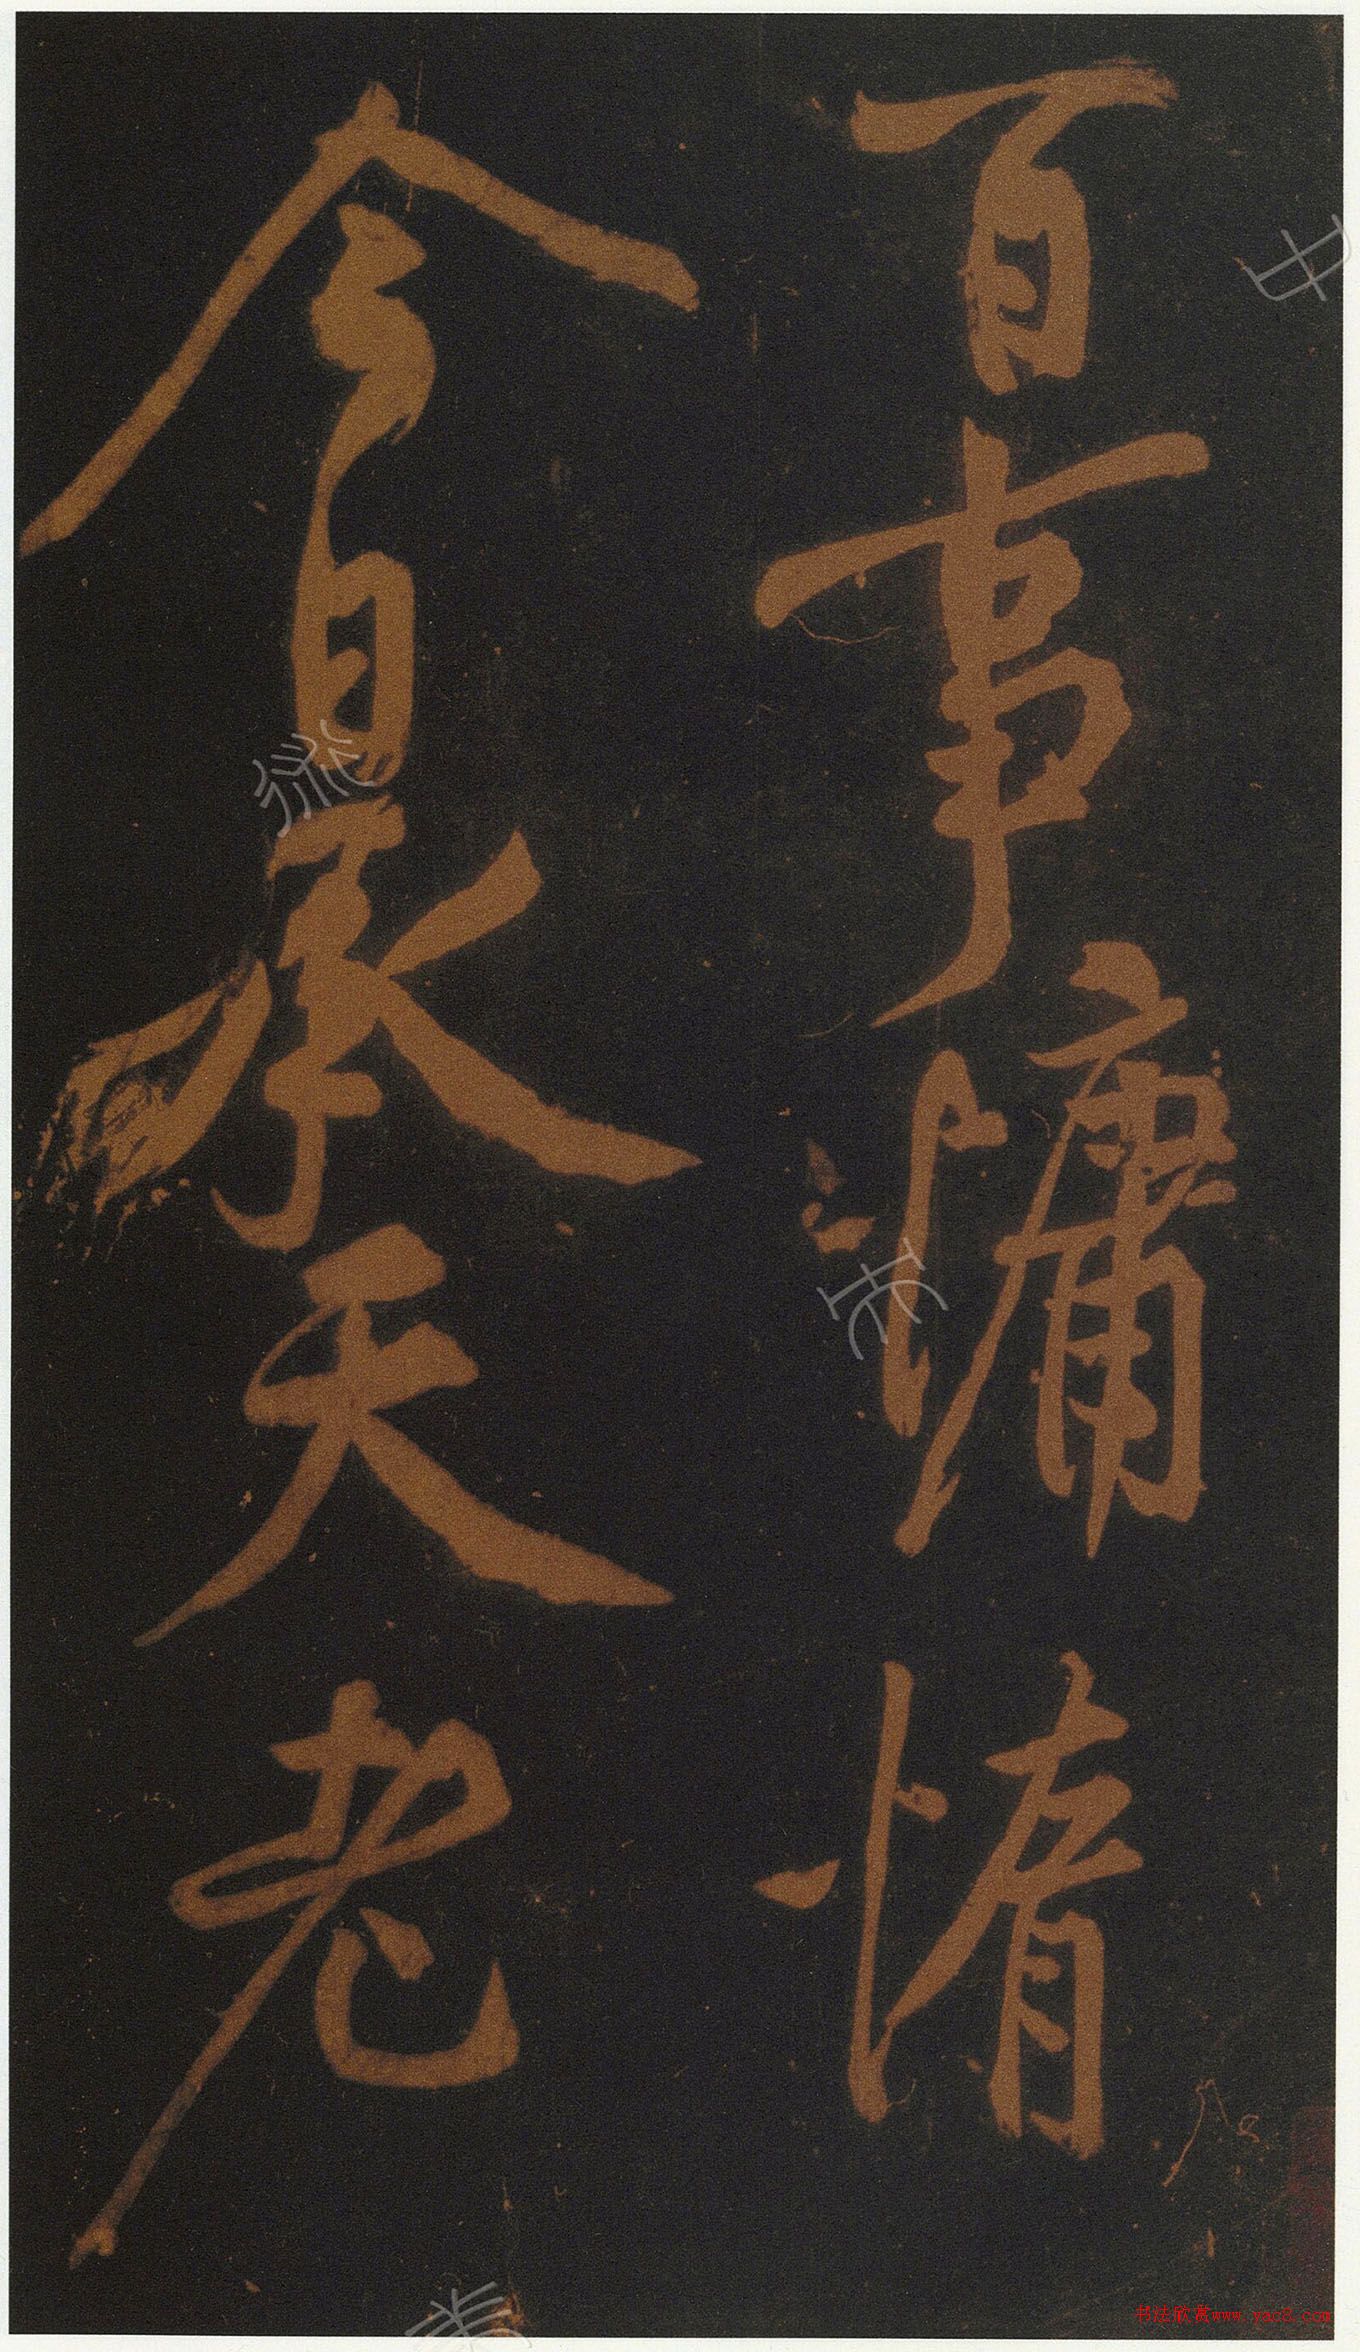 百事慵惰
今日承天老
书法欣赏www.yac8.com